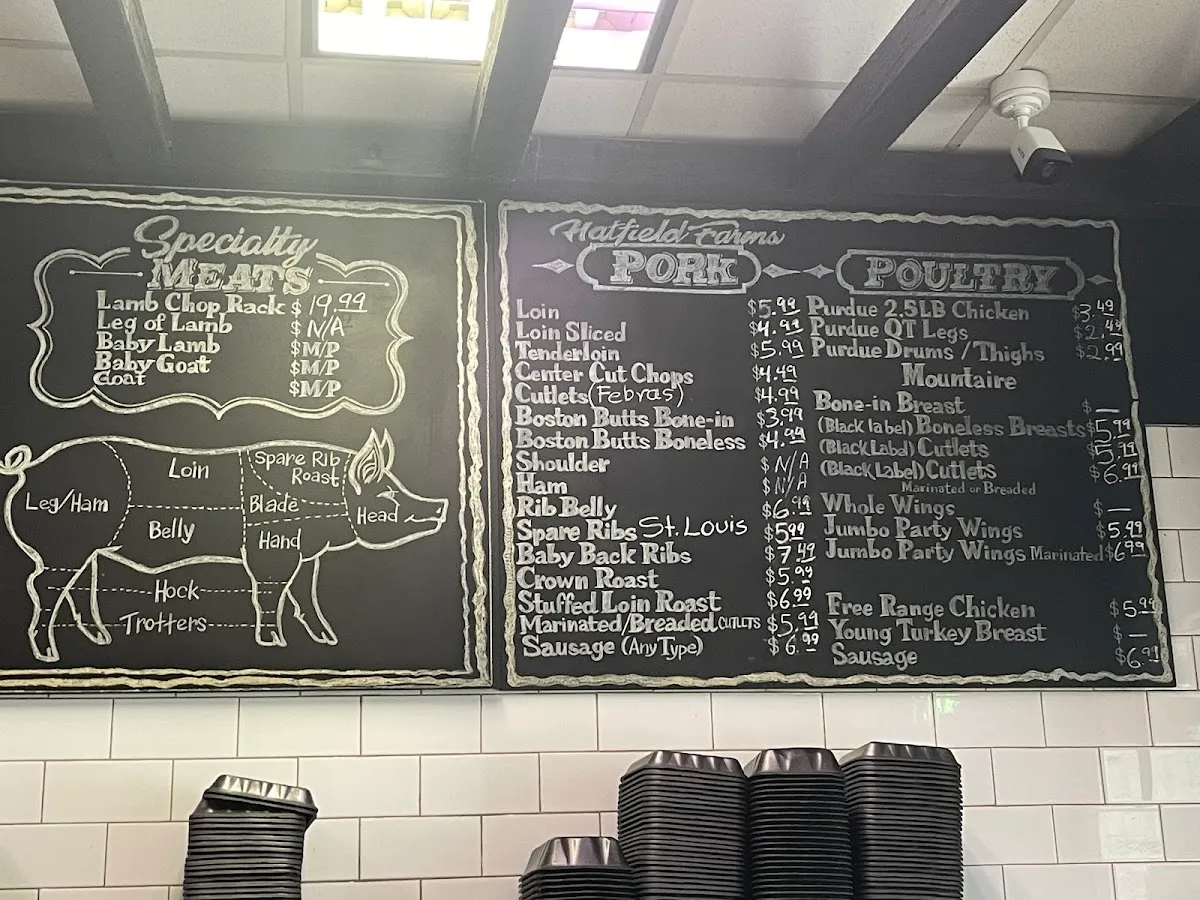 Specialty
MEATS
Lamb Chop Rack $19.99
Leg of Lamb $N/A
Baby Lamb $M/P
Baby Goat $M/P
Goat $M/P
Loin
Spare Rib
Roast
Leg/Ham
Blade
Head
Belly
Hand
Hock
Trotters
Hatfield Farms
PORK
Loin $5.99
Loin Sliced $4.99
Tenderloin $5.99
Center Cut Chops $4.49
Cutlets (Febras) $4.99
Boston Butts Bone-in $3.99
Boston Butts Boneless $4.99
Shoulder $N/A
Ham $N/A
Rib Belly $6.99
Spare Ribs St. Louis $5.99
Baby Back Ribs $7.49
Crown Roast $5.99
Stuffed Loin Roast $6.99
Marinated/Breaded CUTLETS $5.99
Sausage (Any Type) $6.99
POULTRY
Purdue 2.5LB Chicken $3.49
Purdue QT Legs $2.49
Purdue Drums / Thighs $2.99
Mountaire
Bone-in Breast $—
(Black label) Boneless Breasts $5.99
(Black Label) Cutlets $5.99
(Black Label) Cutlets $6.99
Marinated or Breaded
Whole Wings $—
Jumbo Party Wings $5.99
Jumbo Party Wings Marinated $6.99
Free Range Chicken $5.99
Young Turkey Breast $—
Sausage $6.99